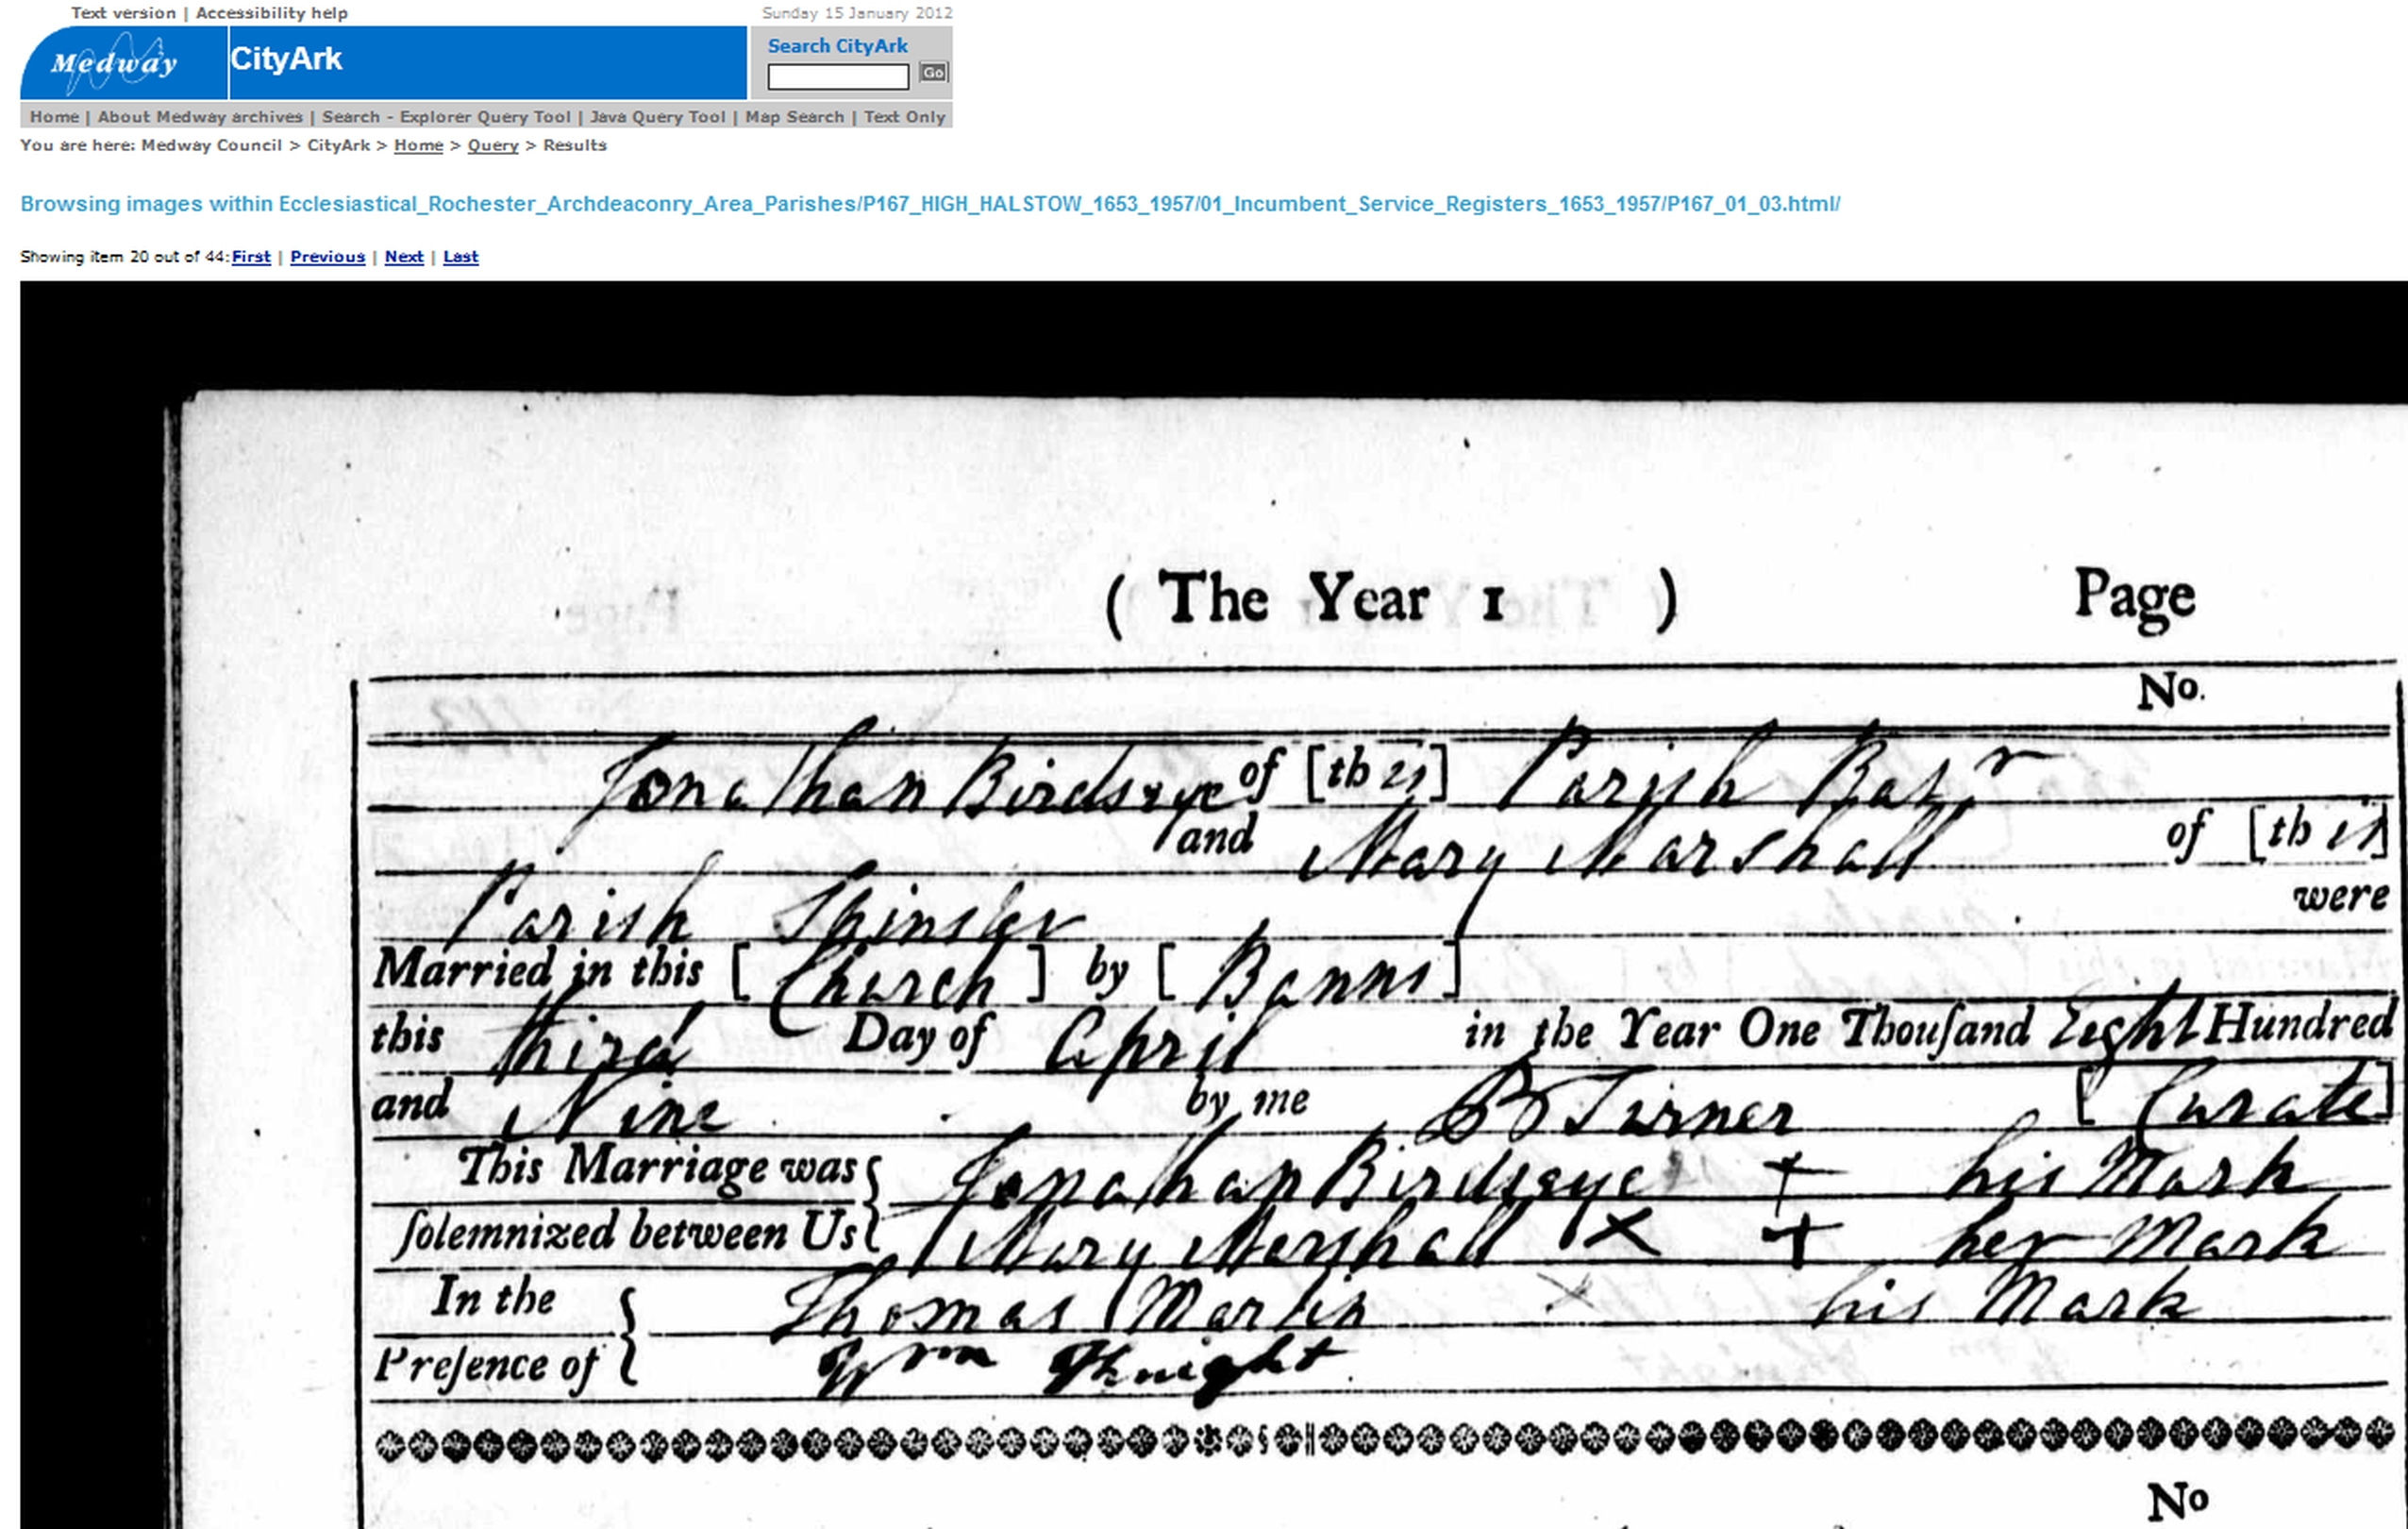 Text version | Accessibility help
Sunday 15 January 2012
Medway
CityArk
Search CityArk
Go
Home | About Medway archives | Search - Explorer Query Tool | Java Query Tool | Map Search | Text Only
You are here: Medway Council > CityArk > Home > Query > Results
Browsing images within Ecclesiastical_Rochester_Archdeaconry_Area_Parishes/P167_HIGH_HALSTOW_1653_1957/01_Incumbent_Service_Registers_1653_1957/P167_01_03.html/
Showing item 20 out of 44: First | Previous | Next | Last
( The Year 1 ) Page
No.
Jonathan Birdseye of [this] Parish Batr
and Mary Marshall of [this]
Parish Spinster were
Married in this [ Church ] by [ Banns ]
this third Day of April in the Year One Thouſand Eight Hundred
and Nine by me B Turner [ Curate ]
This Marriage was { Jonathan Birdseye + his Mark
ſolemnized between Us { Mary Marshall X + her Mark
In the { Thomas Martin x his Mark
Preſence of { Wm Knight
No